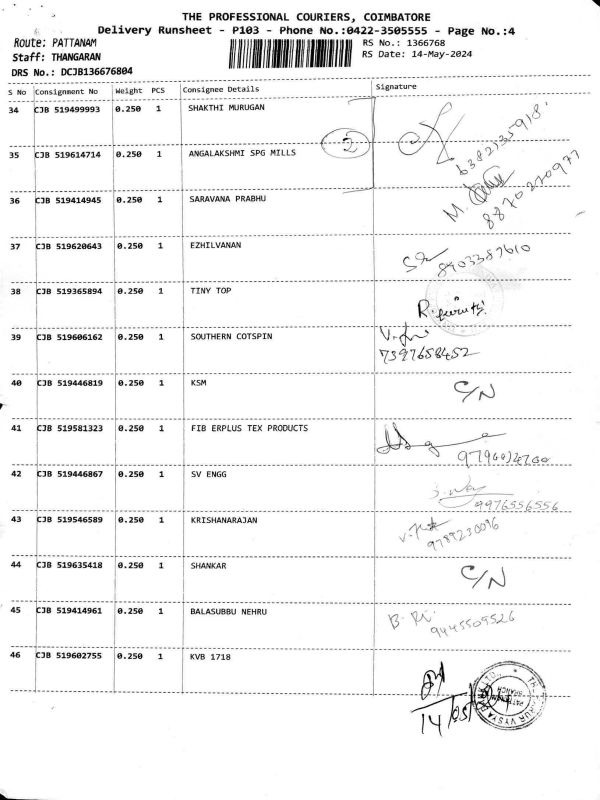 THE PROFESSIONAL COURIERS, COIMBATORE
Delivery Runsheet - P103 - Phone No.:0422-3505555 - Page No.:4
Route: PATTANAM
RS No.: 1366768
Staff: THANGARAN
RS Date: 14-May-2024
DRS No.: DCJB136676804
S No Consignment No Weight PCS Consignee Details Signature
34 CJB 519499993 0.250 1 SHAKTHI MURUGAN
2
6382135918
35 CJB 519614714 0.250 1 ANGALAKSHMI SPG MILLS
M.
8870270977
36 CJB 519414945 0.250 1 SARAVANA PRABHU
37 CJB 519620643 0.250 1 EZHILVANAN
8903387610
38 CJB 519365894 0.250 1 TINY TOP
R.
39 CJB 519606162 0.250 1 SOUTHERN COTSPIN
7397658452
40 CJB 519446819 0.250 1 KSM
C/N
41 CJB 519581323 0.250 1 FIB ERPLUS TEX PRODUCTS
42 CJB 519446867 0.250 1 SV ENGG
9976556556
43 CJB 519546589 0.250 1 KRISHANARAJAN
9789230096
44 CJB 519635418 0.250 1 SHANKAR
C/N
45 CJB 519414961 0.250 1 BALASUBBU NEHRU
9445509526
46 CJB 519602755 0.250 1 KVB 1718
14/05